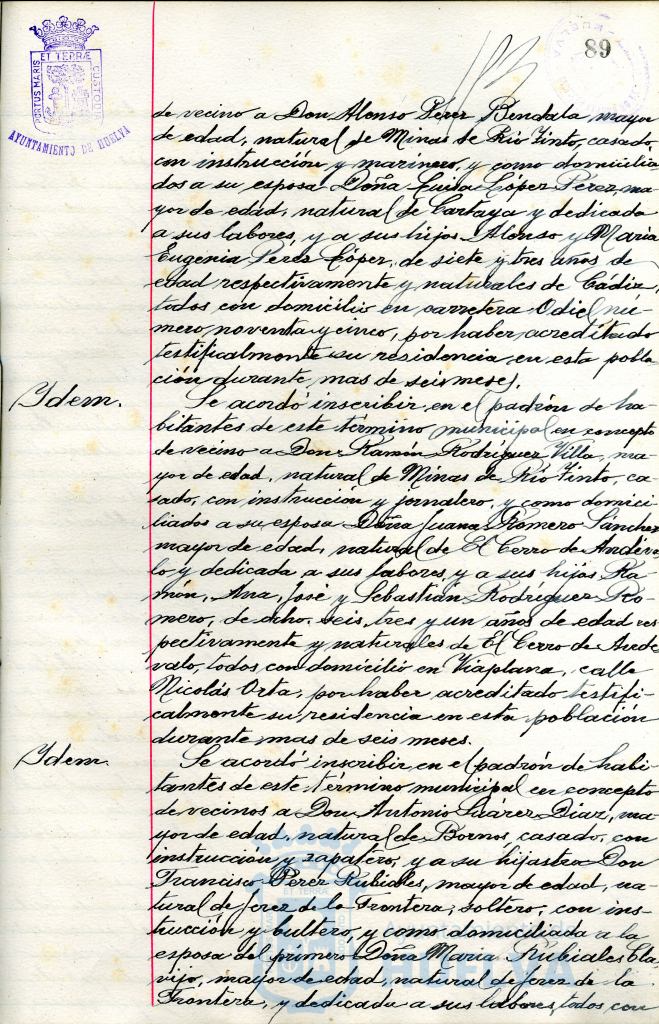 89
PORTUS MARIS
ET TERRÆ
CUSTODIA
AYUNTAMIENTO DE HUELVA
de vecino a Don Alonso Pérez Bendala mayor
de edad, natural de Minas de Río Tinto, casado,
con instrucción y marinero, y como domicilia
dos a su esposa Doña Luisa López Pérez, ma
yor de edad, natural de Cartaya y dedicada
a sus labores, y a sus hijos Alonso y Maria
Eugenia Perez López, de siete y tres años de
edad respectivamente y naturales de Cádiz,
todos con domicilio en carretera Odiel nú-
mero noventa y cinco, por haber acreditado
testificalmente su residencia en esta pobla
ción durante mas de seis meses.
Ydem.
Se acordó inscribir en el padrón de ha-
bitantes de este término municipal en concepto
de vecino a Don Ramón Rodríguez Villa, ma
yor de edad, natural de Minas de Río Tinto, ca-
sado, con instrucción y jornalero, y como domici
liados a su esposa Doña Juana Romero Sánchez
mayor de edad, natural de El Cerro de Andéva
lo y dedicada a sus labores y a sus hijos Ra
món, Ana, José y Sebastián Rodríguez Ro-
mero, de ocho, seis, tres y un años de edad res
pectivamente y naturales de El Cerro de Ande
valo, todos con domicilio en Viaplana, calle
Nicolás Orta, por haber acreditado testifi-
calmente su residencia en esta población
durante mas de seis meses.
Ydem.
Se acordó inscribir en el padrón de habi-
tantes de este término municipal en concepto
de vecinos a Don Antonio Suárez Diaz, ma
yor de edad, natural de Bornos, casado, con
instrucción y zapatero, y a su hijastro Don
Francisco Perez Rubiales, mayor de edad, na-
tural de Jerez de la Frontera, soltero, con ins-
trucción y bultero, y como domiciliada a la
esposa del primero Doña Maria Rubiales Cla
vijo, mayor de edad, natural de Jerez de la
Frontera, y dedicada a sus labores, todos con
ET TERRÆ
Ayuntamiento de
HUELVA